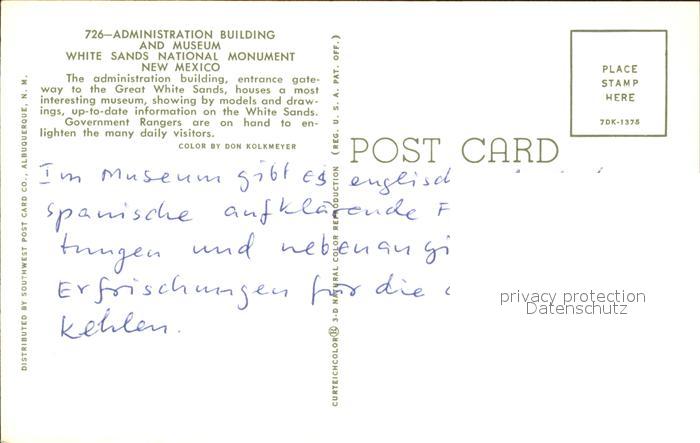 726—ADMINISTRATION BUILDING
AND MUSEUM
WHITE SANDS NATIONAL MONUMENT
NEW MEXICO
The administration building, entrance gate-
way to the Great White Sands, houses a most
interesting museum, showing by models and draw-
ings, up-to-date information on the White Sands.
Government Rangers are on hand to en-
lighten the many daily visitors.
COLOR BY DON KOLKMEYER
DISTRIBUTED BY SOUTHWEST POST CARD CO., ALBUQUERQUE, N. M.
CURTEICHCOLOR® 3-D NATURAL COLOR REPRODUCTION (REG. U. S. A. PAT. OFF.)
POST CARD
PLACE
STAMP
HERE
7DK-1375
Im Museum gibt es englisch
spanische aufklärende F
tungen und nebenan gi
Erfrischungen für die
Kehlen.
privacy protection
Datenschutz